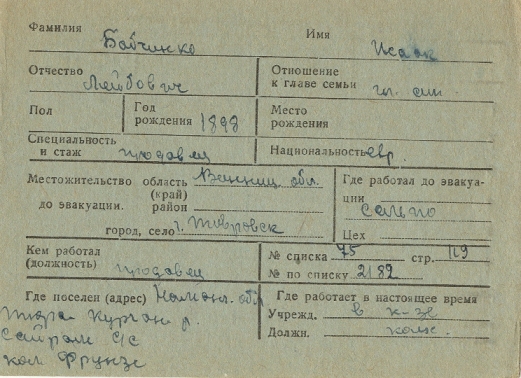 Фамилия Бабчинко Имя Исаак
Отчество Лейбович
Отношение к главе семьи гл. сем.
Пол
Год рождения 1898
Место рождения
Специальность и стаж продавец
Национальность евр.
Местожительство область (край) Винниц. обл.
до эвакуации. район
город, село г. Тывровск
Где работал до эвакуации сельпо
Цех
Кем работал (должность) продавец
№ списка 75 стр. 119
№ по списку 2182
Где поселен (адрес) обл.
Тюра Курган р.
Сайрам С/С
кол Фрунзе
Где работает в настоящее время
Учрежд. в к-зе
Должн. колх.